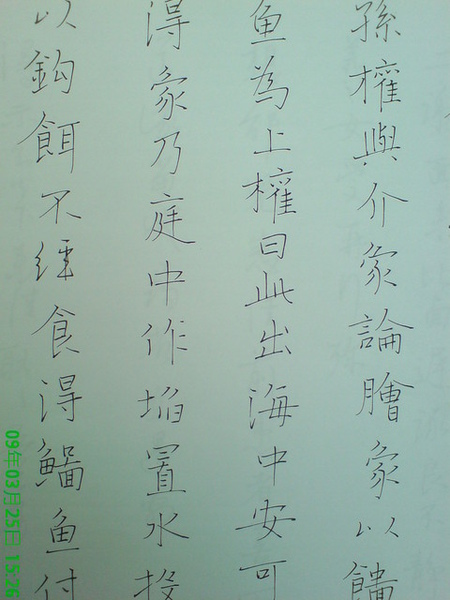 孫權與介象論膾象以
魚為上權曰此出海中安可
得象乃庭中作埳置水投
以鈎餌不經食得鯔魚付
09年03月25日 15:26